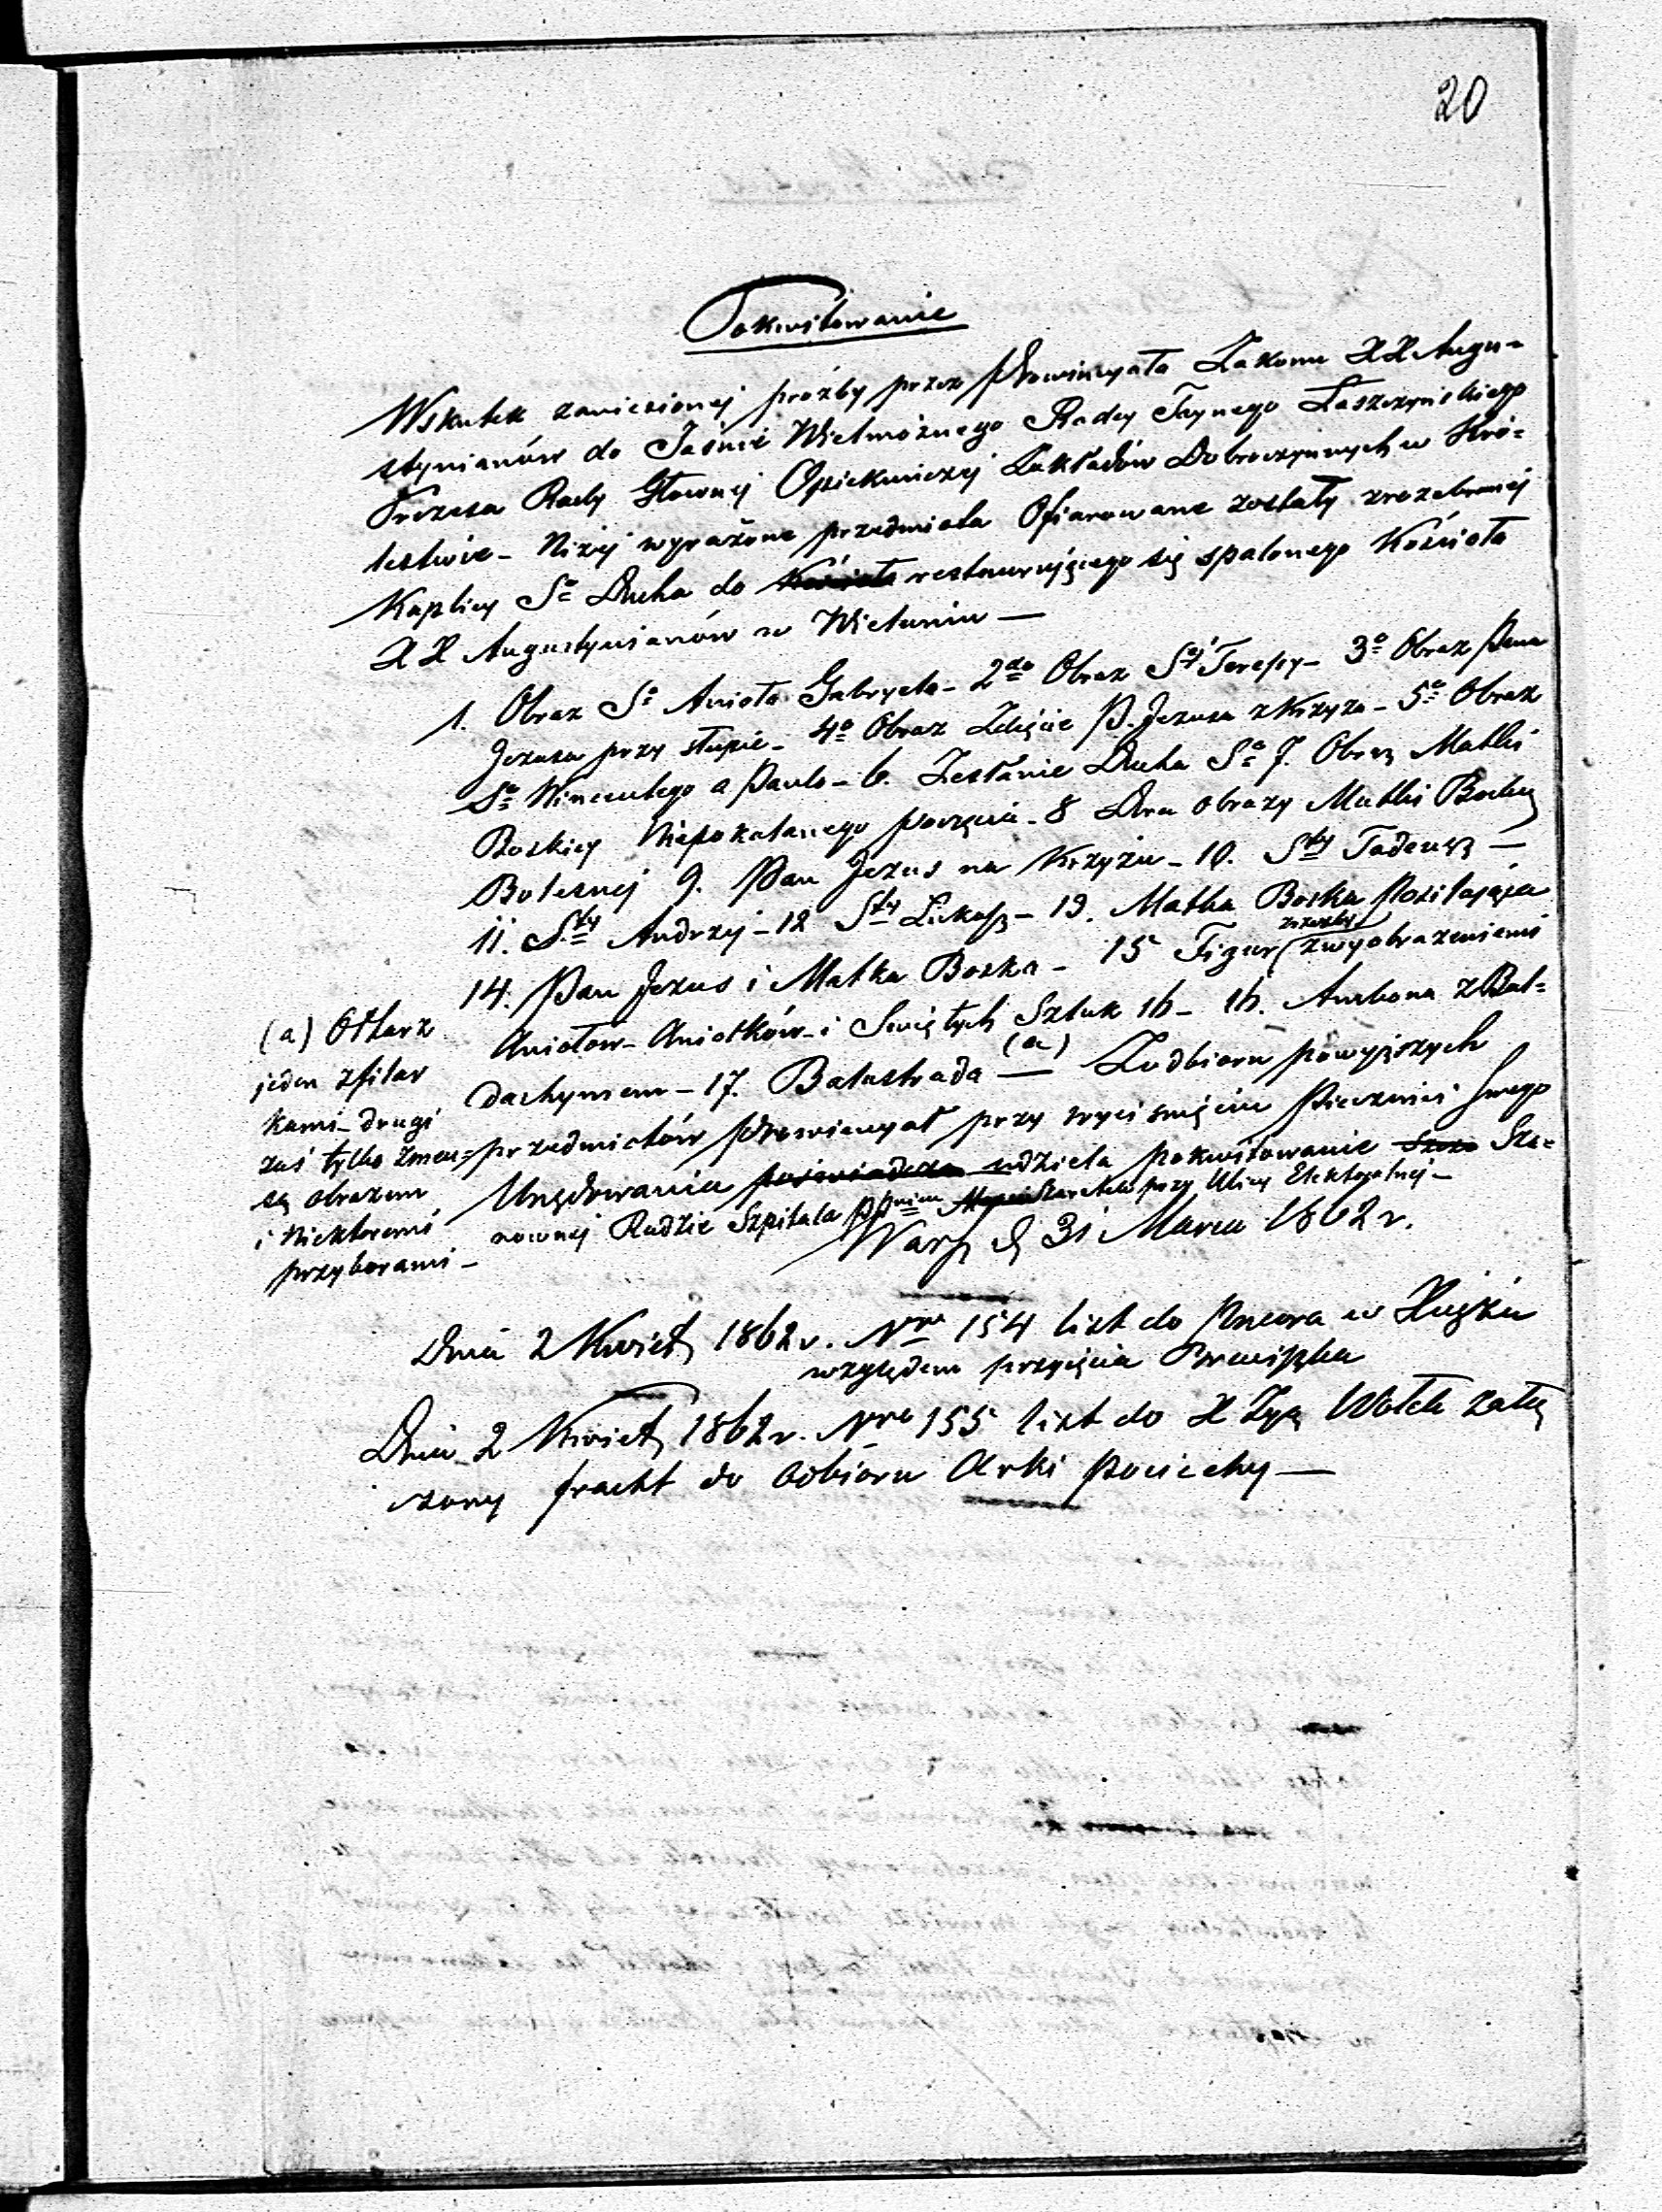 20
Pokwitowanie
Wskutek zaniesionej prośby przez Prowincyała Zakonu XX Augu-
stynianów do Jaśnie Wielmożnego Radcy Taynego Łaszczyńskiego
Prezesa Rady Głownej Opiekuńczej Zakładów Dobroczynnych w Kró-
lestwie - Niżej wyrażone przedmiota Ofiarowane zostały z rozebranej
Kaplicy So Ducha do Kościoła restaurującego się spalonego Kościoła
XX Augustynianów w Wieluniu —
1. Obraz So Anioła Gabryela - 2do Obraz Stej Teressy - 3o Obraz Pana
Jezusa przy słupie - 4o Obraz Zdięcie P. Jezusa z Krzyża - 5o Obraz
So Wincentego a Paulo - 6. Zesłanie Ducha So 7. Obraz Matki
Boskiey Niepokalanego poczęcia - 8 Dwa obrazy Matki Boskiej
Bolesnej 9. Pan Jezus na Krzyżu - 10. Sty Tadeusz —
11. Sty Andrzej - 12 Sty Łukasz - 13. Matka Boska
14. Pan Jezus i Matka Boska - 15 Figur z wyobrażeniami
Aniołów - Aniołków - i Swiętych Sztuk 16 - 16. Ambona z Bal-
dachymem - 17. Balustrada (a) — Z odbioru powyższych
przedmiotów Prowincyał przy wyciśnięciu Pieczęci swego
Urzędowania poświadcza udziela pokwitowanie Sza-
nownej Radzie Szpitala przy Ulicy Elektoralnej -
Wars d 31 Marca 1862 r.
(a) Ołtarz
jeden z filar
kami - drugi
zaś tylko z men-
są obrazem
i niektoremi
przyborami -
Dnia 2 Kwiet 1862 r. Nro 154 list do Przeora w Książu
względem przyjęcia
Dnia 2 Kwiet 1862 r. Nro 155 list do X załą
czony fracht do odbioru Arki pociechy —